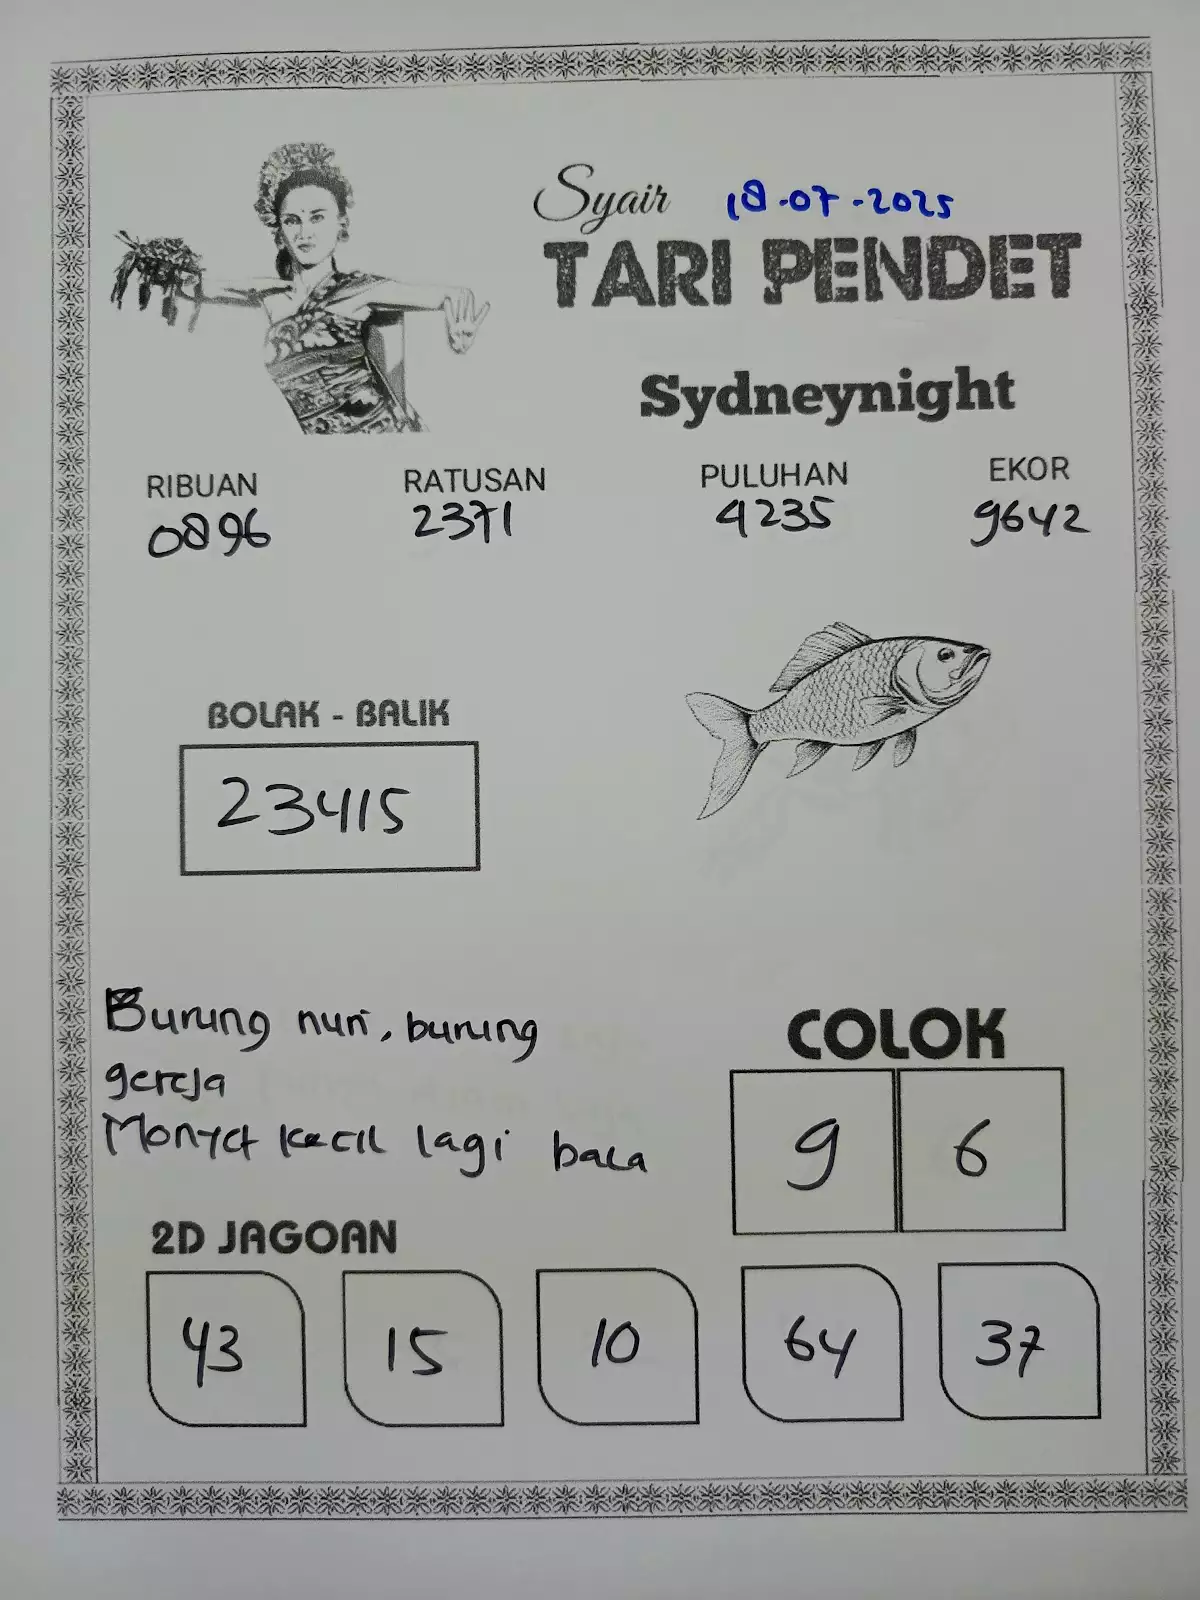 Syair 18-07-2025
TARI PENDET
Sydneynight
RIBUAN RATUSAN PULUHAN EKOR
0896 2371 4235 9642
BOLAK - BALIK
23415
Burung nuri, burung
gereja
Monyet kecil lagi baca
COLOK
9 6
2D JAGOAN
43 15 10 64 37